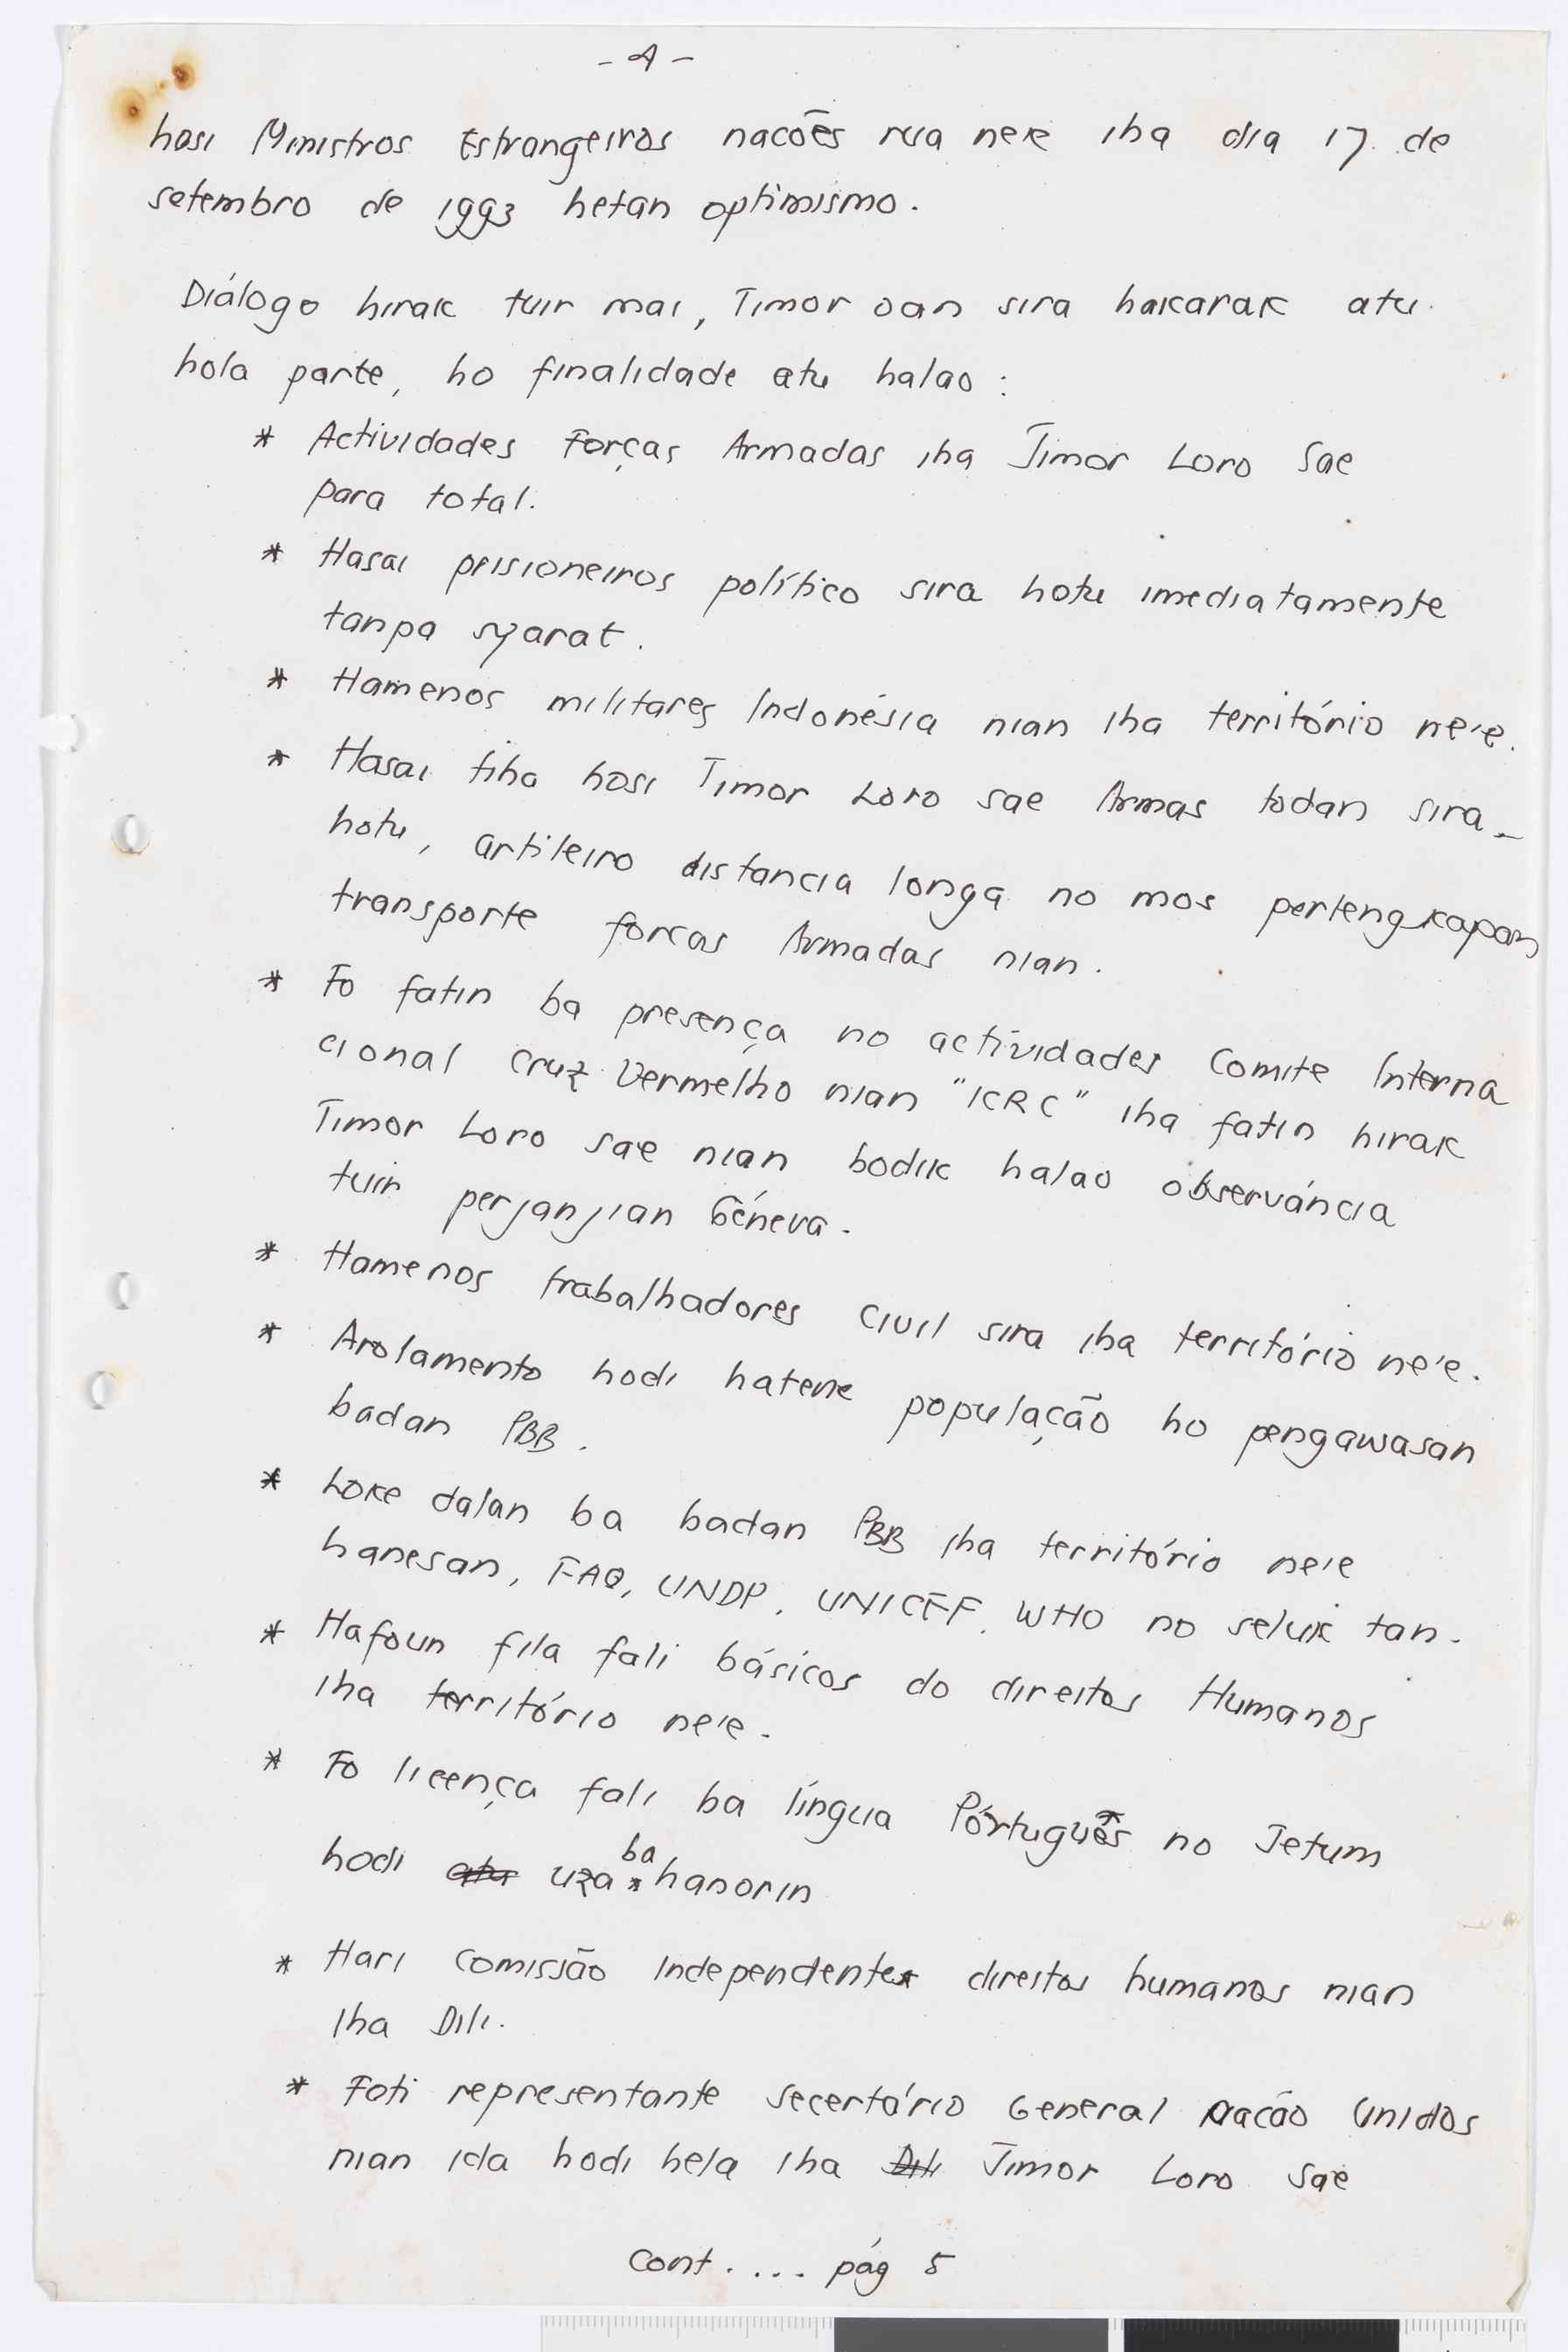 - 4 -
hosi Ministros Estrangeiros nacões rua ne'e iha dia 17 de
setembro de 1993 hetan optimismo.
Diálogo hirak tuir mai, Timor oan sira hakarak atu
hola parte, ho finalidade atu halao :
* Actividades Forças Armadas iha Timor Loro Sae
para total.
* Hasai prisioneiros político sira hotu imediatamente
tanpa syarat.
* Hamenos militares Indonésia nian iha território ne'e.
* Hasai tiha hosi Timor Loro sae Armas todan sira
hotu, artileiro distancia longa no mos perlengkapan
transporte forcas Armadas nian.
* Fo fatin ba presença no actividades Comite Interna
cional Cruz Vermelho nian "ICRC" iha fatin hirak
Timor Loro sae nian bodik halao observáncia
tuir perjanjian Géneva.
* Hamenos trabalhadores civil sira iha território ne'e.
* Arolamento hodi hatene população ho pengawasan
badan PBB.
* Loke dalan ba badan PBB iha território ne'e
hanesan, FAO, UNDP, UNICEF, WHO no seluk tan.
* Hafoun fila fali básicos do direitos Humanos
iha território ne'e.
* Fo licença fali ba língua Pórtuguês no Tetum
hodi atu uza ba hanorin
* Hari comissão Independente direitos humanos nian
iha Dili.
* Foti representante secertário General nacão Unidos
nian ida hodi hela iha Dili Timor Loro Sae
Cont.... pág 5